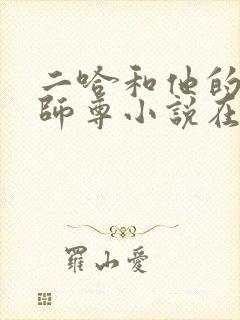 二哈和他的
師尊小說在
羅山愛